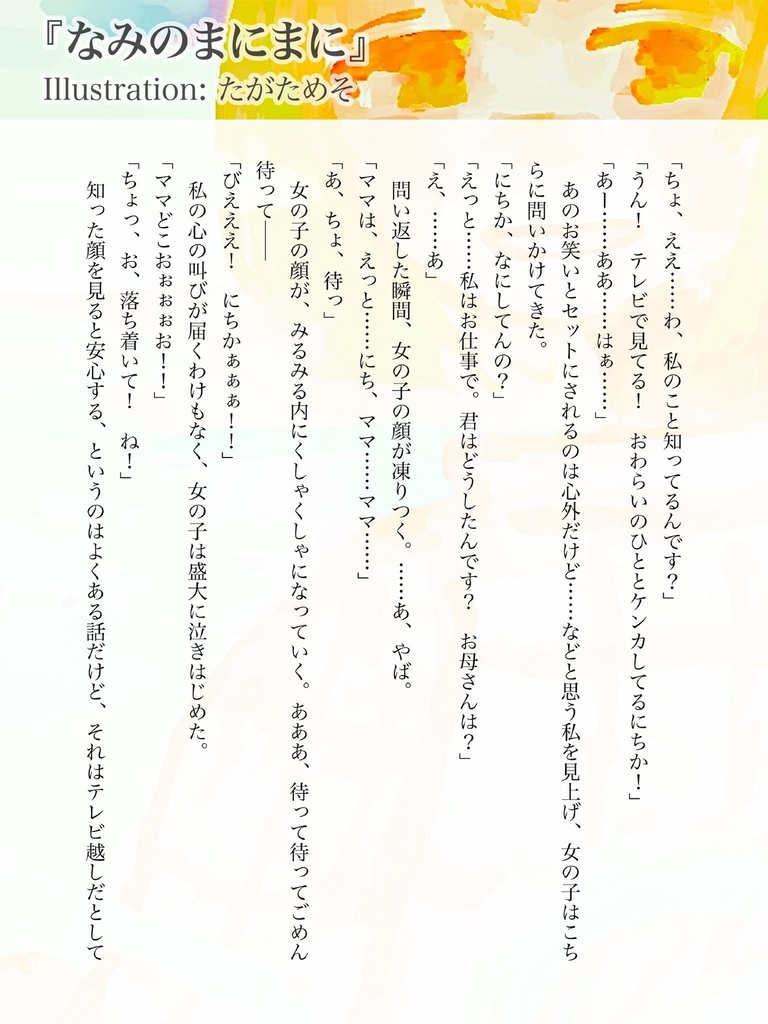 『なみのまにまに』
Illustration: たがためそ
「ちょ、ええ……わ、私のこと知ってるんです？」
「うん！　テレビで見てる！　おわらいのひととケンカしてるにちか！」
「あー……ああ……はぁ……」
　あのお笑いとセットにされるのは心外だけど……などと思う私を見上げ、女の子はこち
らに問いかけてきた。
「にちか、なにしてんの？」
「えっと……私はお仕事で。君はどうしたんです？　お母さんは？」
「え、……あ」
　問い返した瞬間、女の子の顔が凍りつく。……あ、やば。
「ママは、えっと……にち、ママ……ママ……」
「あ、ちょ、待っ」
　女の子の顔が、みるみる内にくしゃくしゃになっていく。あああ、待って待ってごめん
待って――
「びえええ！　にちかぁぁぁ！！」
　私の心の叫びが届くわけもなく、女の子は盛大に泣きはじめた。
「ママどこおぉぉぉお！！」
「ちょっ、お、落ち着いて！　ね！」
　知った顔を見ると安心する、というのはよくある話だけど、それはテレビ越しだとして